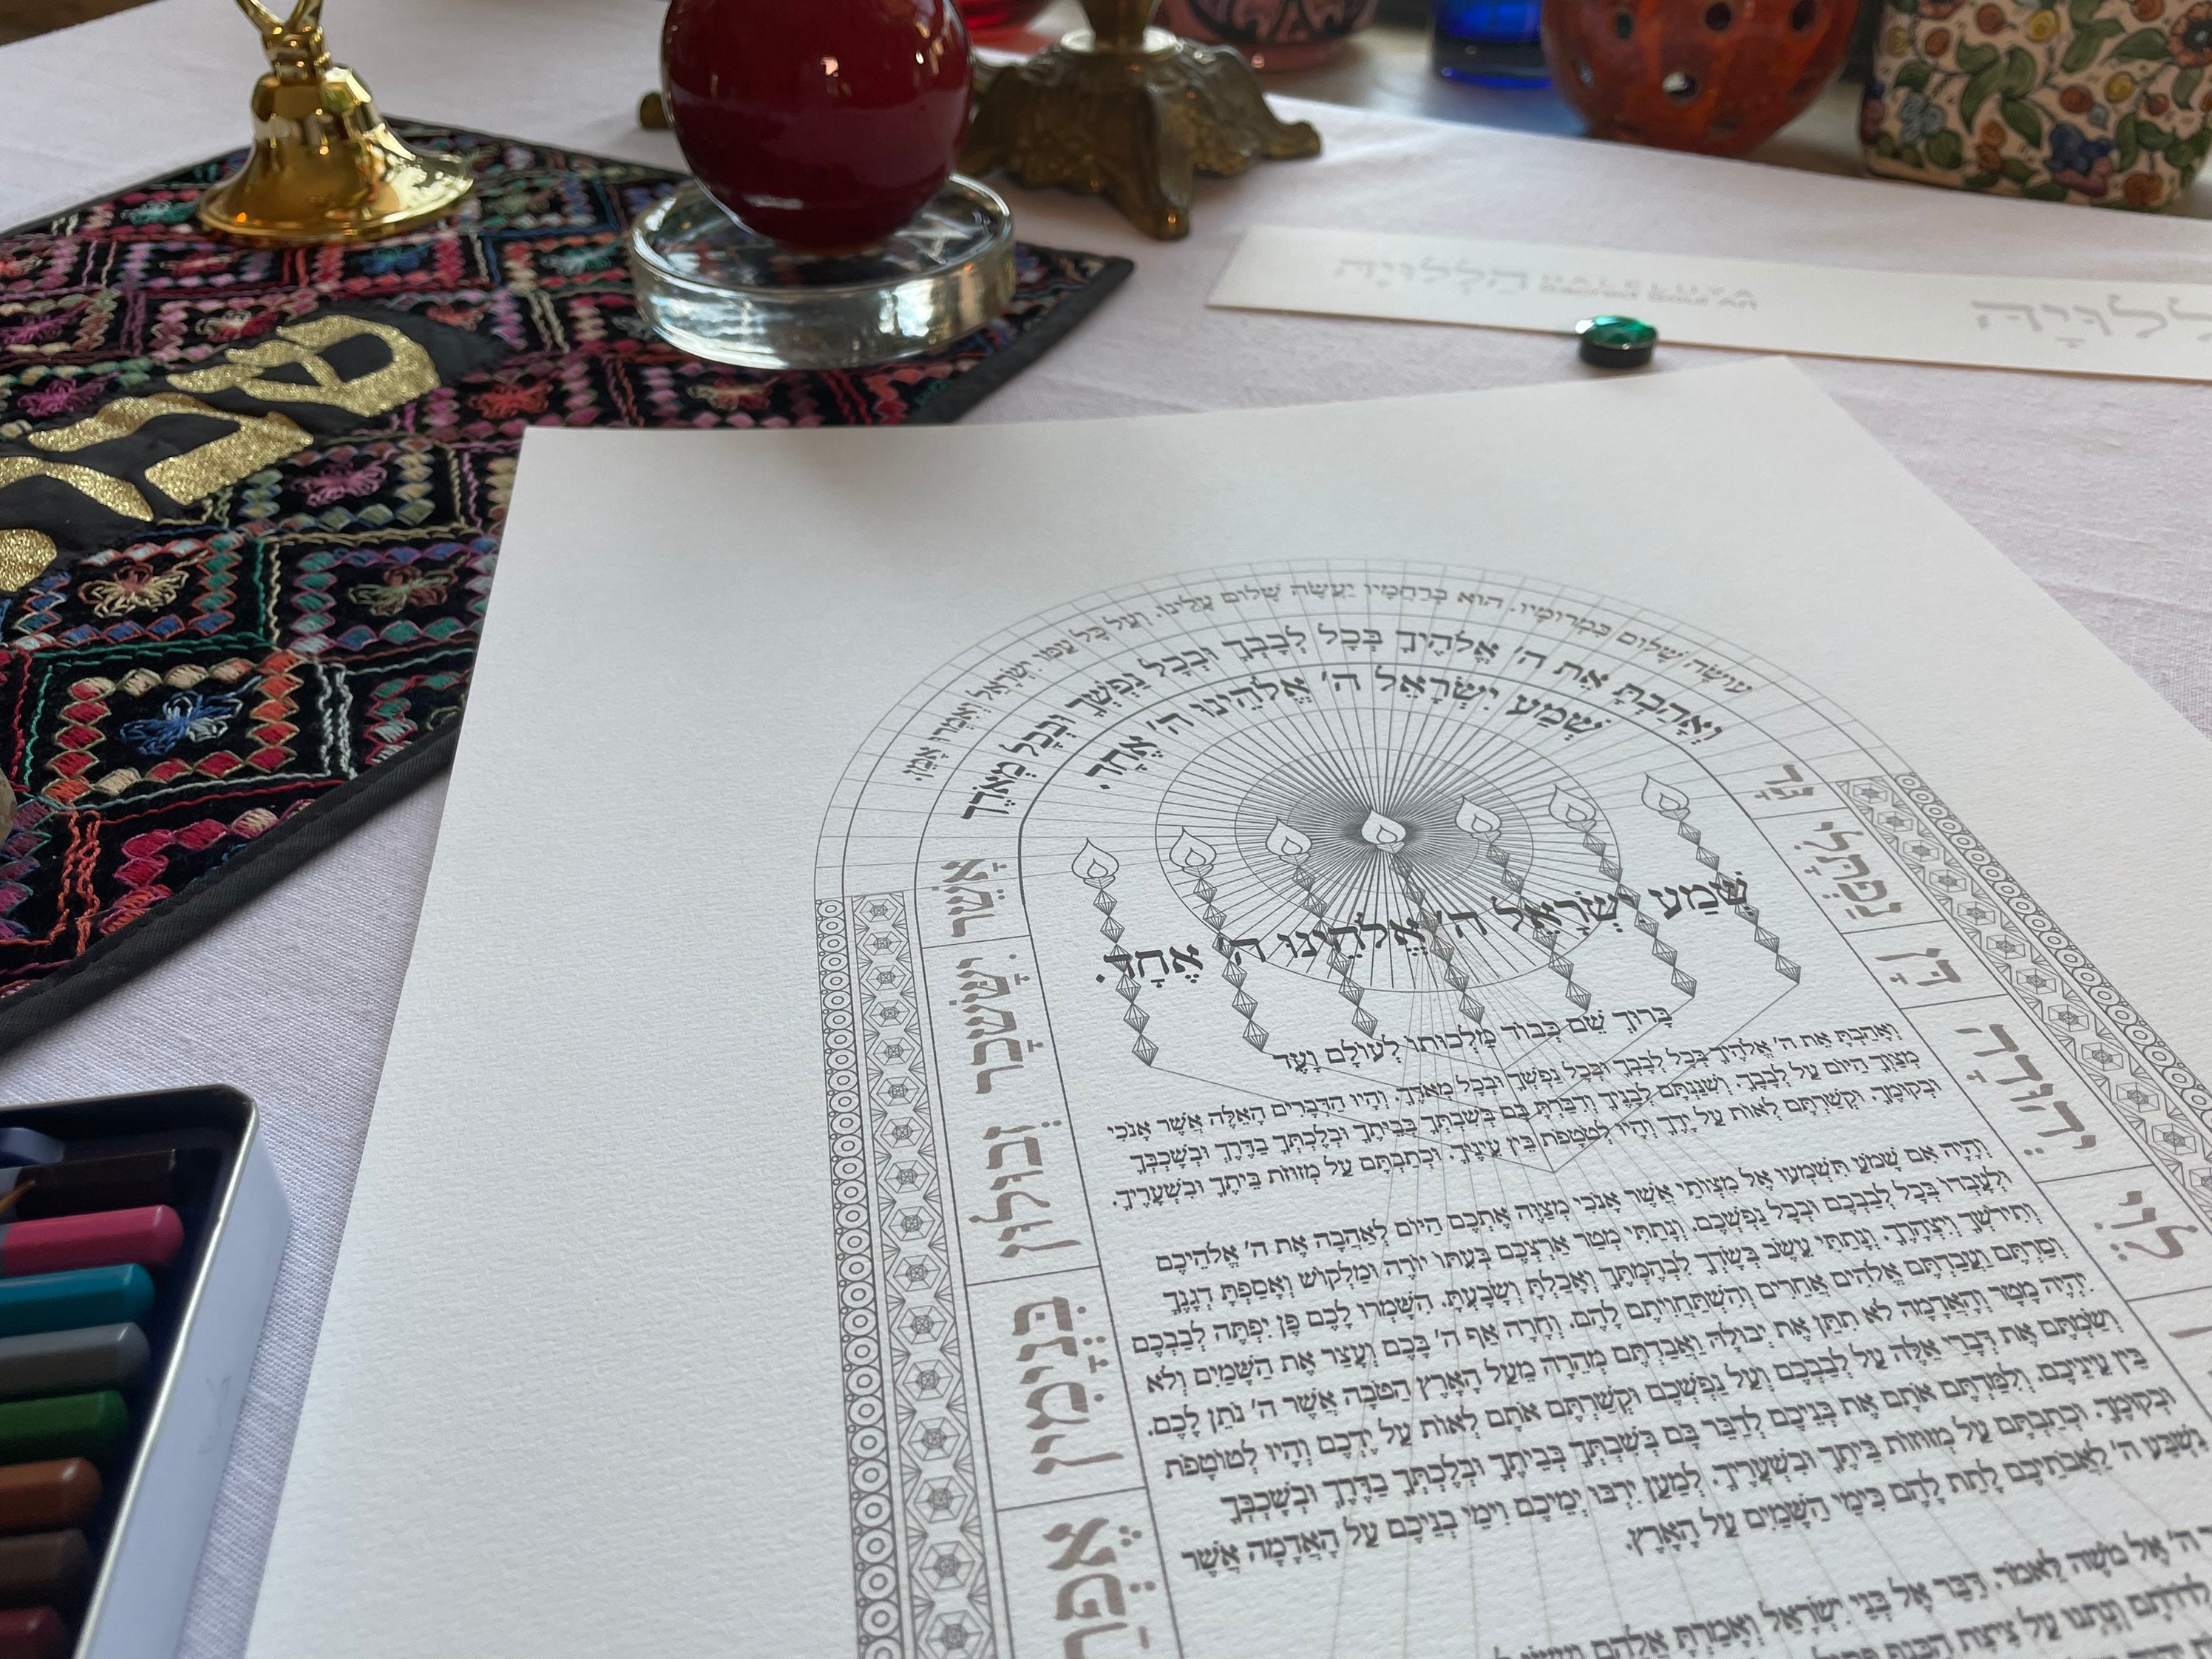 הַלְלוּיָהּ HALELUYA
Sacred Soul Art
לְלוּיָהּ
שבת
עוֹשֶׂה שָׁלוֹם בִּמְרוֹמָיו. הוּא בְּרַחֲמָיו יַעֲשֶׂה שָׁלוֹם עָלֵינוּ. וְעַל כָּל עַמּוֹ יִשְׂרָאֵל וְאִמְרוּ אָמֵן.
וְאָהַבְתָּ אֵת ה' אֱלֹהֶיךָ בְּכָל לְבָבְךָ וּבְכָל נַפְשְׁךָ וּבְכָל מְאֹדֶךָ
שְׁמַע יִשְׂרָאֵל ה' אֱלֹהֵינוּ ה' אֶחָד.
גָּד
נַפְתָּלִי
דָּן
יְהוּדָה
לֵוִי
אָשֵׁר
יִשָּׂשכָר
זְבוּלוּן
בִּנְיָמִין
אֶפְרַ
שְׁמַע יִשְׂרָאֵל ה' אֱלֹהֵינוּ ה' אֶחָד.
בָּרוּךְ שֵׁם כְּבוֹד מַלְכוּתוֹ לְעוֹלָם וָעֶד
וְאָהַבְתָּ אֵת ה' אֱלֹהֶיךָ בְּכָל לְבָבְךָ וּבְכָל נַפְשְׁךָ וּבְכָל מְאֹדֶךָ. וְהָיוּ הַדְּבָרִים הָאֵלֶּה אֲשֶׁר אָנֹכִי
מְצַוְּךָ הַיּוֹם עַל לְבָבֶךָ. וְשִׁנַּנְתָּם לְבָנֶיךָ וְדִבַּרְתָּ בָּם בְּשִׁבְתְּךָ בְּבֵיתֶךָ וּבְלֶכְתְּךָ בַדֶּרֶךְ וּבְשָׁכְבְּךָ
וּבְקוּמֶךָ. וּקְשַׁרְתָּם לְאוֹת עַל יָדֶךָ וְהָיוּ לְטֹטָפֹת בֵּין עֵינֶיךָ. וּכְתַבְתָּם עַל מְזוּזֹת בֵּיתֶךָ וּבִשְׁעָרֶיךָ.
וְהָיָה אִם שָׁמֹעַ תִּשְׁמְעוּ אֶל מִצְוֹתַי אֲשֶׁר אָנֹכִי מְצַוֶּה אֶתְכֶם הַיּוֹם לְאַהֲבָה אֶת ה' אֱלֹהֵיכֶם
וּלְעָבְדוֹ בְּכָל לְבַבְכֶם וּבְכָל נַפְשְׁכֶם. וְנָתַתִּי מְטַר אַרְצְכֶם בְּעִתּוֹ יוֹרֶה וּמַלְקוֹשׁ וְאָסַפְתָּ דְגָנֶךָ
וְתִירֹשְׁךָ וְיִצְהָרֶךָ. וְנָתַתִּי עֵשֶׂב בְּשָׂדְךָ לִבְהֶמְתֶּךָ וְאָכַלְתָּ וְשָׂבָעְתָּ. הִשָּׁמְרוּ לָכֶם פֶּן יִפְתֶּה לְבַבְכֶם
וְסַרְתֶּם וַעֲבַדְתֶּם אֱלֹהִים אֲחֵרִים וְהִשְׁתַּחֲוִיתֶם לָהֶם. וְחָרָה אַף ה' בָּכֶם וְעָצַר אֶת הַשָּׁמַיִם וְלֹא
יִהְיֶה מָטָר וְהָאֲדָמָה לֹא תִתֵּן אֶת יְבוּלָהּ וַאֲבַדְתֶּם מְהֵרָה מֵעַל הָאָרֶץ הַטֹּבָה אֲשֶׁר ה' נֹתֵן לָכֶם.
וְשַׂמְתֶּם אֶת דְּבָרַי אֵלֶּה עַל לְבַבְכֶם וְעַל נַפְשְׁכֶם וּקְשַׁרְתֶּם אֹתָם לְאוֹת עַל יֶדְכֶם וְהָיוּ לְטוֹטָפֹת
בֵּין עֵינֵיכֶם. וְלִמַּדְתֶּם אֹתָם אֶת בְּנֵיכֶם לְדַבֵּר בָּם בְּשִׁבְתְּךָ בְּבֵיתֶךָ וּבְלֶכְתְּךָ בַדֶּרֶךְ וּבְשָׁכְבְּךָ
וּבְקוּמֶךָ. וּכְתַבְתָּם עַל מְזוּזוֹת בֵּיתֶךָ וּבִשְׁעָרֶיךָ. לְמַעַן יִרְבּוּ יְמֵיכֶם וִימֵי בְנֵיכֶם עַל הָאֲדָמָה אֲשֶׁר
נִשְׁבַּע ה' לַאֲבֹתֵיכֶם לָתֵת לָהֶם כִּימֵי הַשָּׁמַיִם עַל הָאָרֶץ.
ה' אֶל מֹשֶׁה לֵּאמֹר. דַּבֵּר אֶל בְּנֵי יִשְׂרָאֵל וְאָמַרְתָּ אֲלֵהֶם וְעָשׂוּ
לְדֹרֹתָם וְנָתְנוּ עַל צִיצִת הַכָּנָף